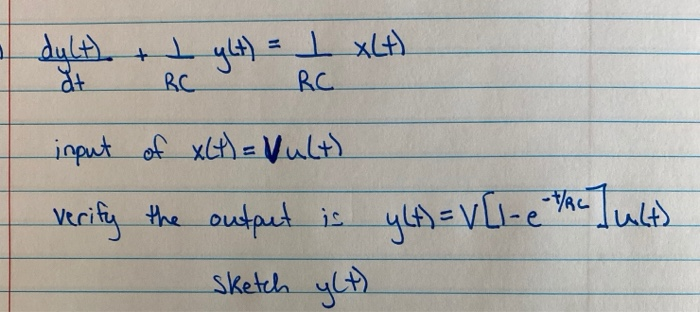 dy(t)/dt + 1/RC y(t) = 1/RC x(t)
input of x(t) = Vu(t)
verify the output is y(t) = V[1-e^{-t/RC}]u(t)
Sketch y(t)